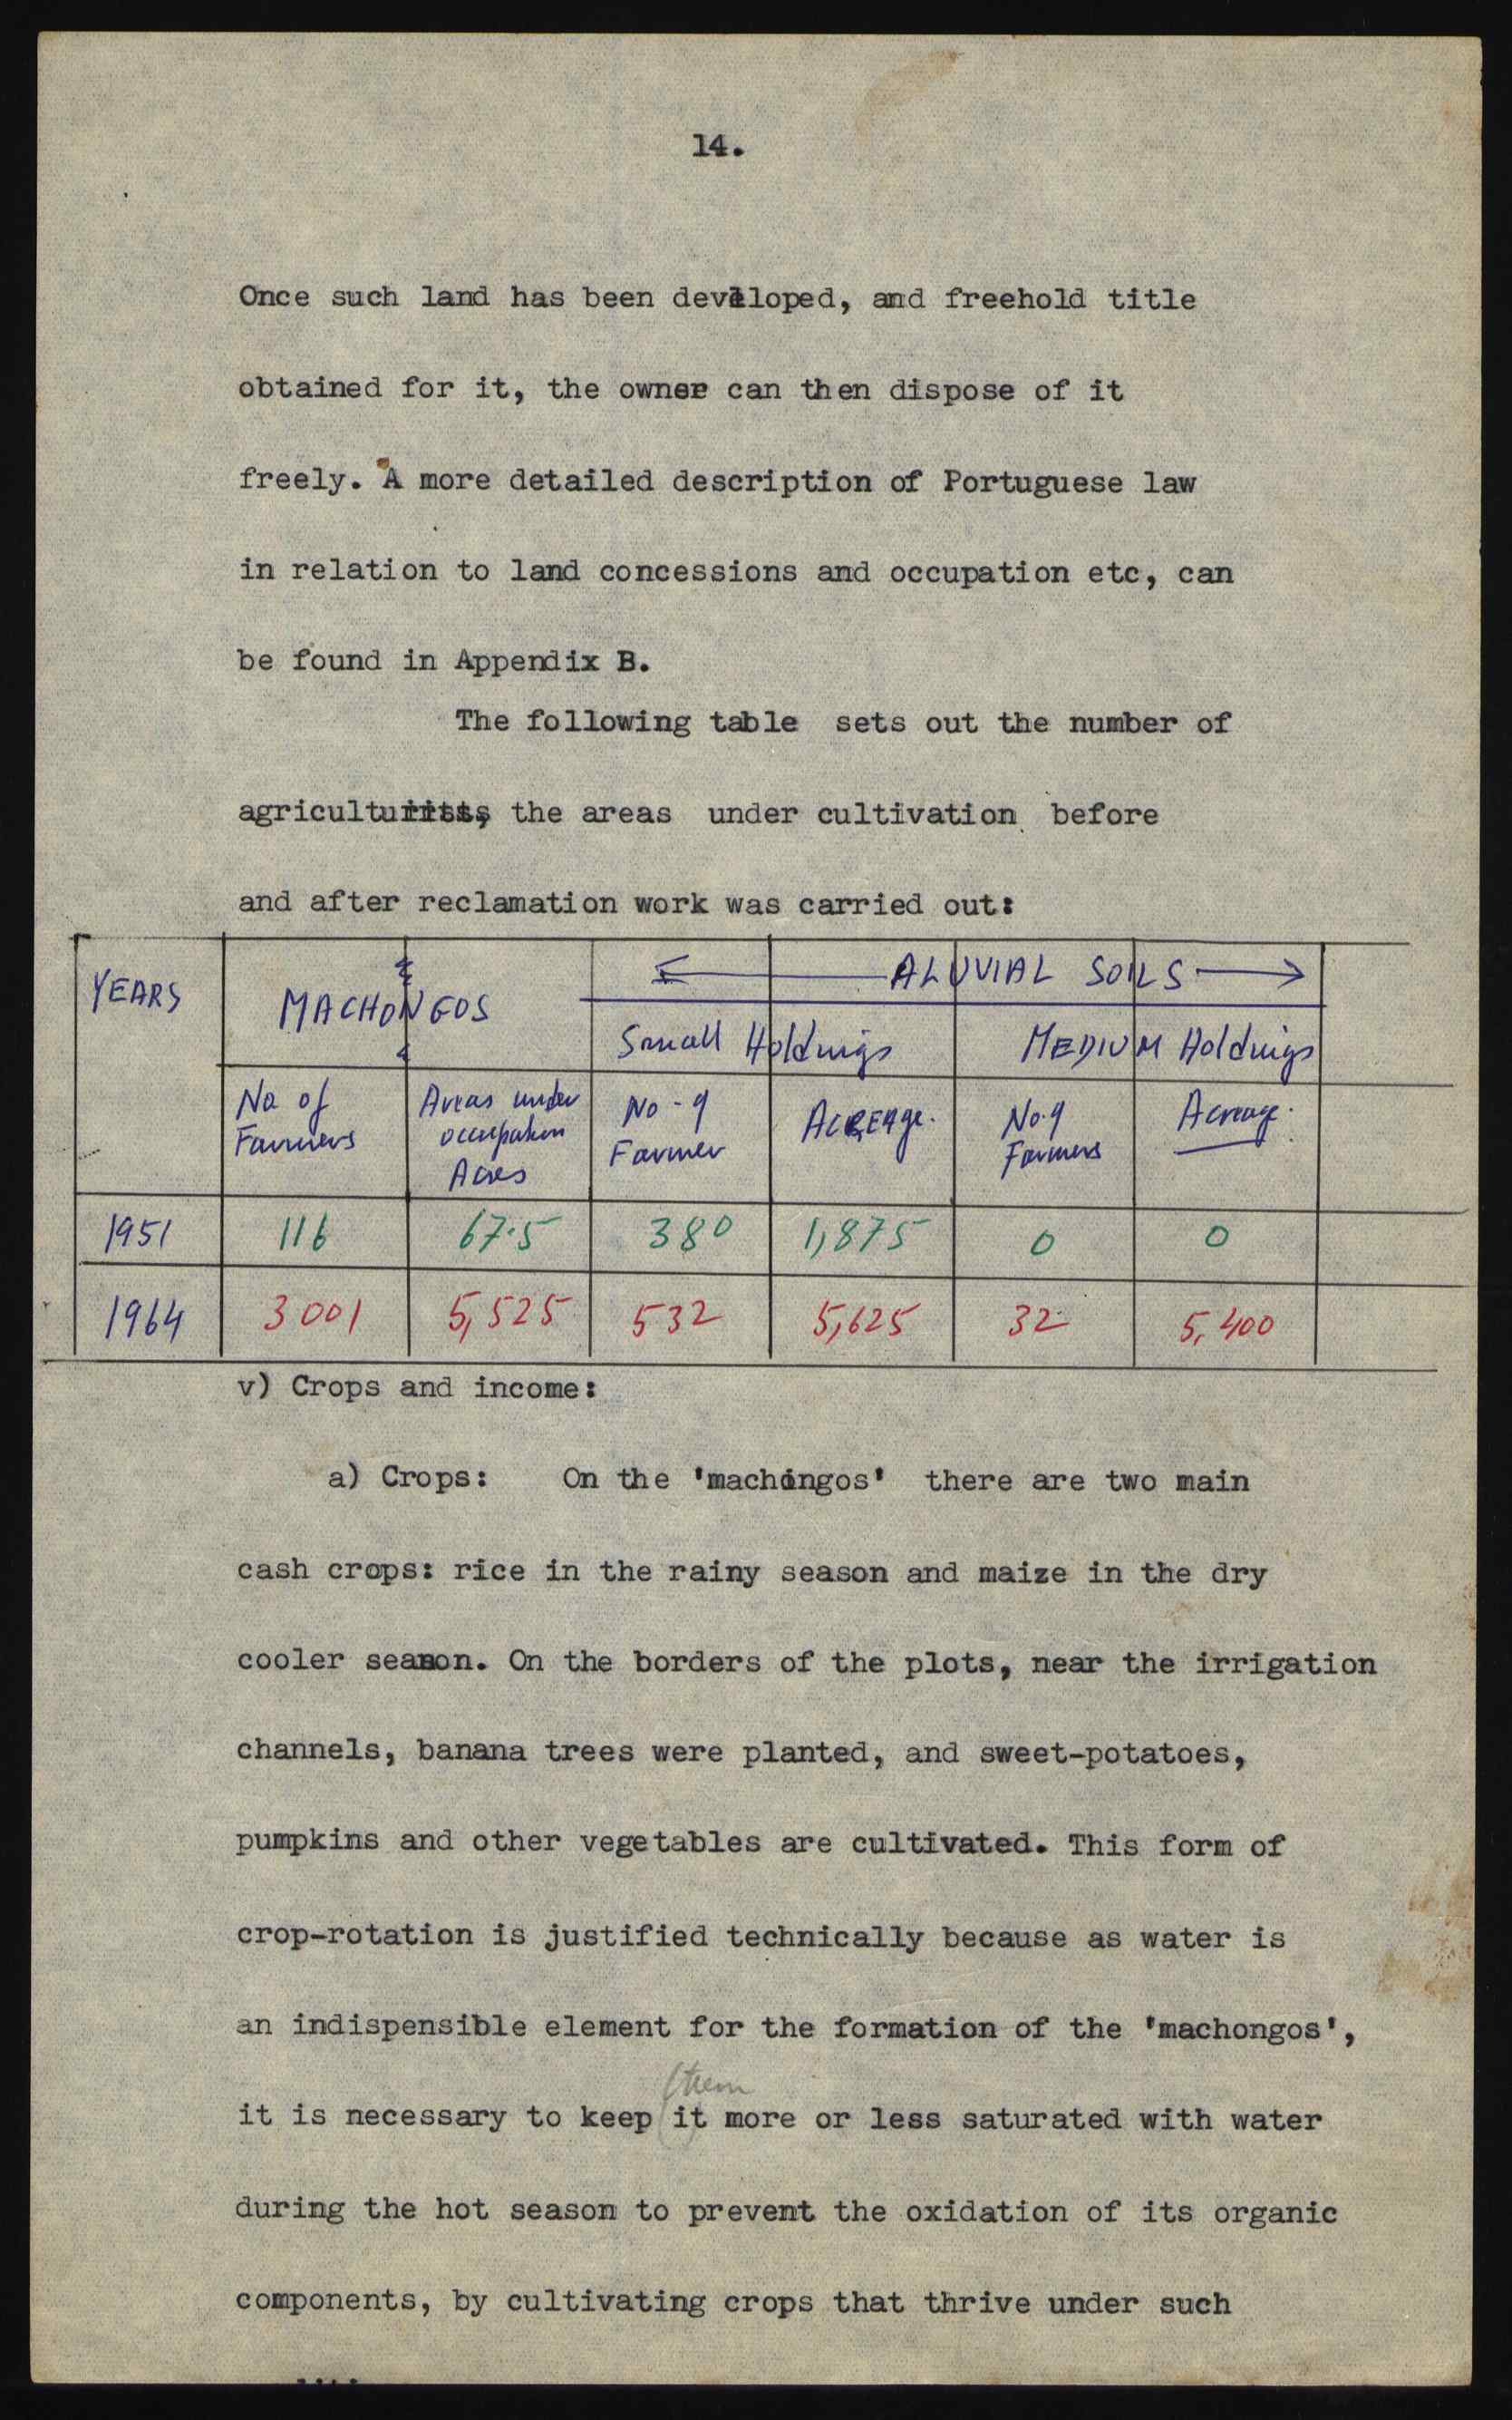 14.
Once such land has been developed, and freehold title
obtained for it, the owner can then dispose of it
freely. A more detailed description of Portuguese law
in relation to land concessions and occupation etc, can
be found in Appendix B.
The following table sets out the number of
agriculturists, the areas under cultivation before
and after reclamation work was carried out:
YEARS MACHONGOS ALUVIAL SOILS
Small Holdings MEDIUM Holdings
No of Farmers Areas under occupation Acres No - of Farmer ACREAge. No. of Farmers Acreage.
1951 116 67.5 380 1,875 0 0
1964 3001 5,525 532 5,625 32 5,400
v) Crops and income:
a) Crops: On the 'machongos' there are two main
cash crops: rice in the rainy season and maize in the dry
cooler season. On the borders of the plots, near the irrigation
channels, banana trees were planted, and sweet-potatoes,
pumpkins and other vegetables are cultivated. This form of
crop-rotation is justified technically because as water is
an indispensible element for the formation of the 'machongos',
them
it is necessary to keep it more or less saturated with water
during the hot season to prevent the oxidation of its organic
components, by cultivating crops that thrive under such